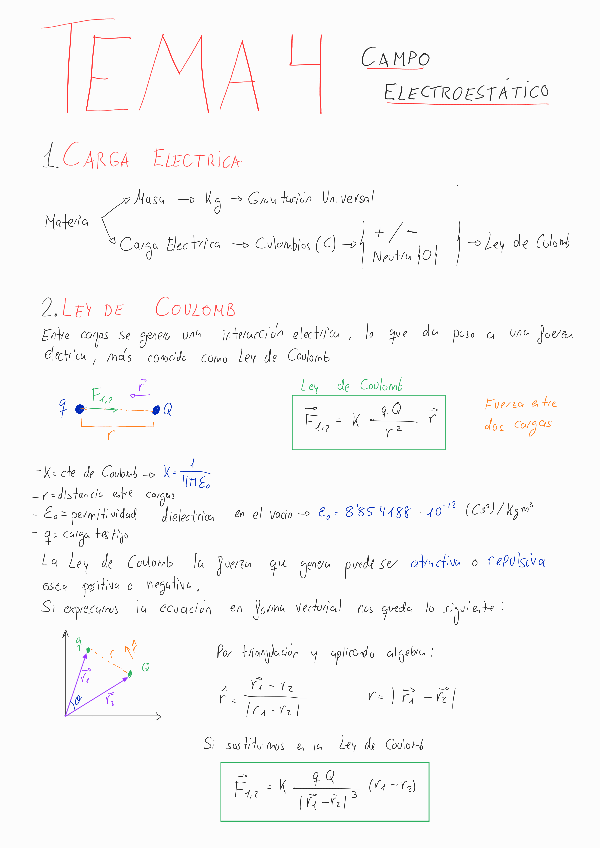 TEMA 4
CAMPO
ELECTROESTÁTICO
1. CARGA ELECTRICA
Materia
Masa → Kg → Gravitación Universal
Carga Electrica → Culombios (C) → + / - Neutra |0| → Ley de Culomb
2. LEY DE COULOMB
Entre cargas se genera una interacción electrica, lo que da paso a una fuerza
electrica, más conocido como Ley de Coulomb
Ley de Coulomb
q F⃗1,2 r⃗ Q
r
F⃗1,2 = K q·Q / r² r⃗
Fuerza entre
dos cargas
- K = cte de Coulomb → K = 1 / 4πε₀
- r = distancia entre cargas
- ε₀ = permitividad dielectrica en el vacío → ε₀ = 8'854188 · 10⁻¹² (C²s²)/Kgm³
- q = carga testigo
La Ley de Coulomb la fuerza que genera puede ser atractiva o repulsiva
positiva o negativa.
Si expresamos la ecuación en forma vectorial nos queda lo siguiente:
q r r̂ Q
r⃗1 θ r⃗2
Por triangulación y aplicando algebra:
r̂ = r⃗1 - r2 / |r1 - r2|
r = |r⃗1 - r⃗2|
Si sustituimos en la Ley de Coulomb
F⃗1,2 = K q·Q / |r⃗1 - r⃗2|³ (r1 - r2)